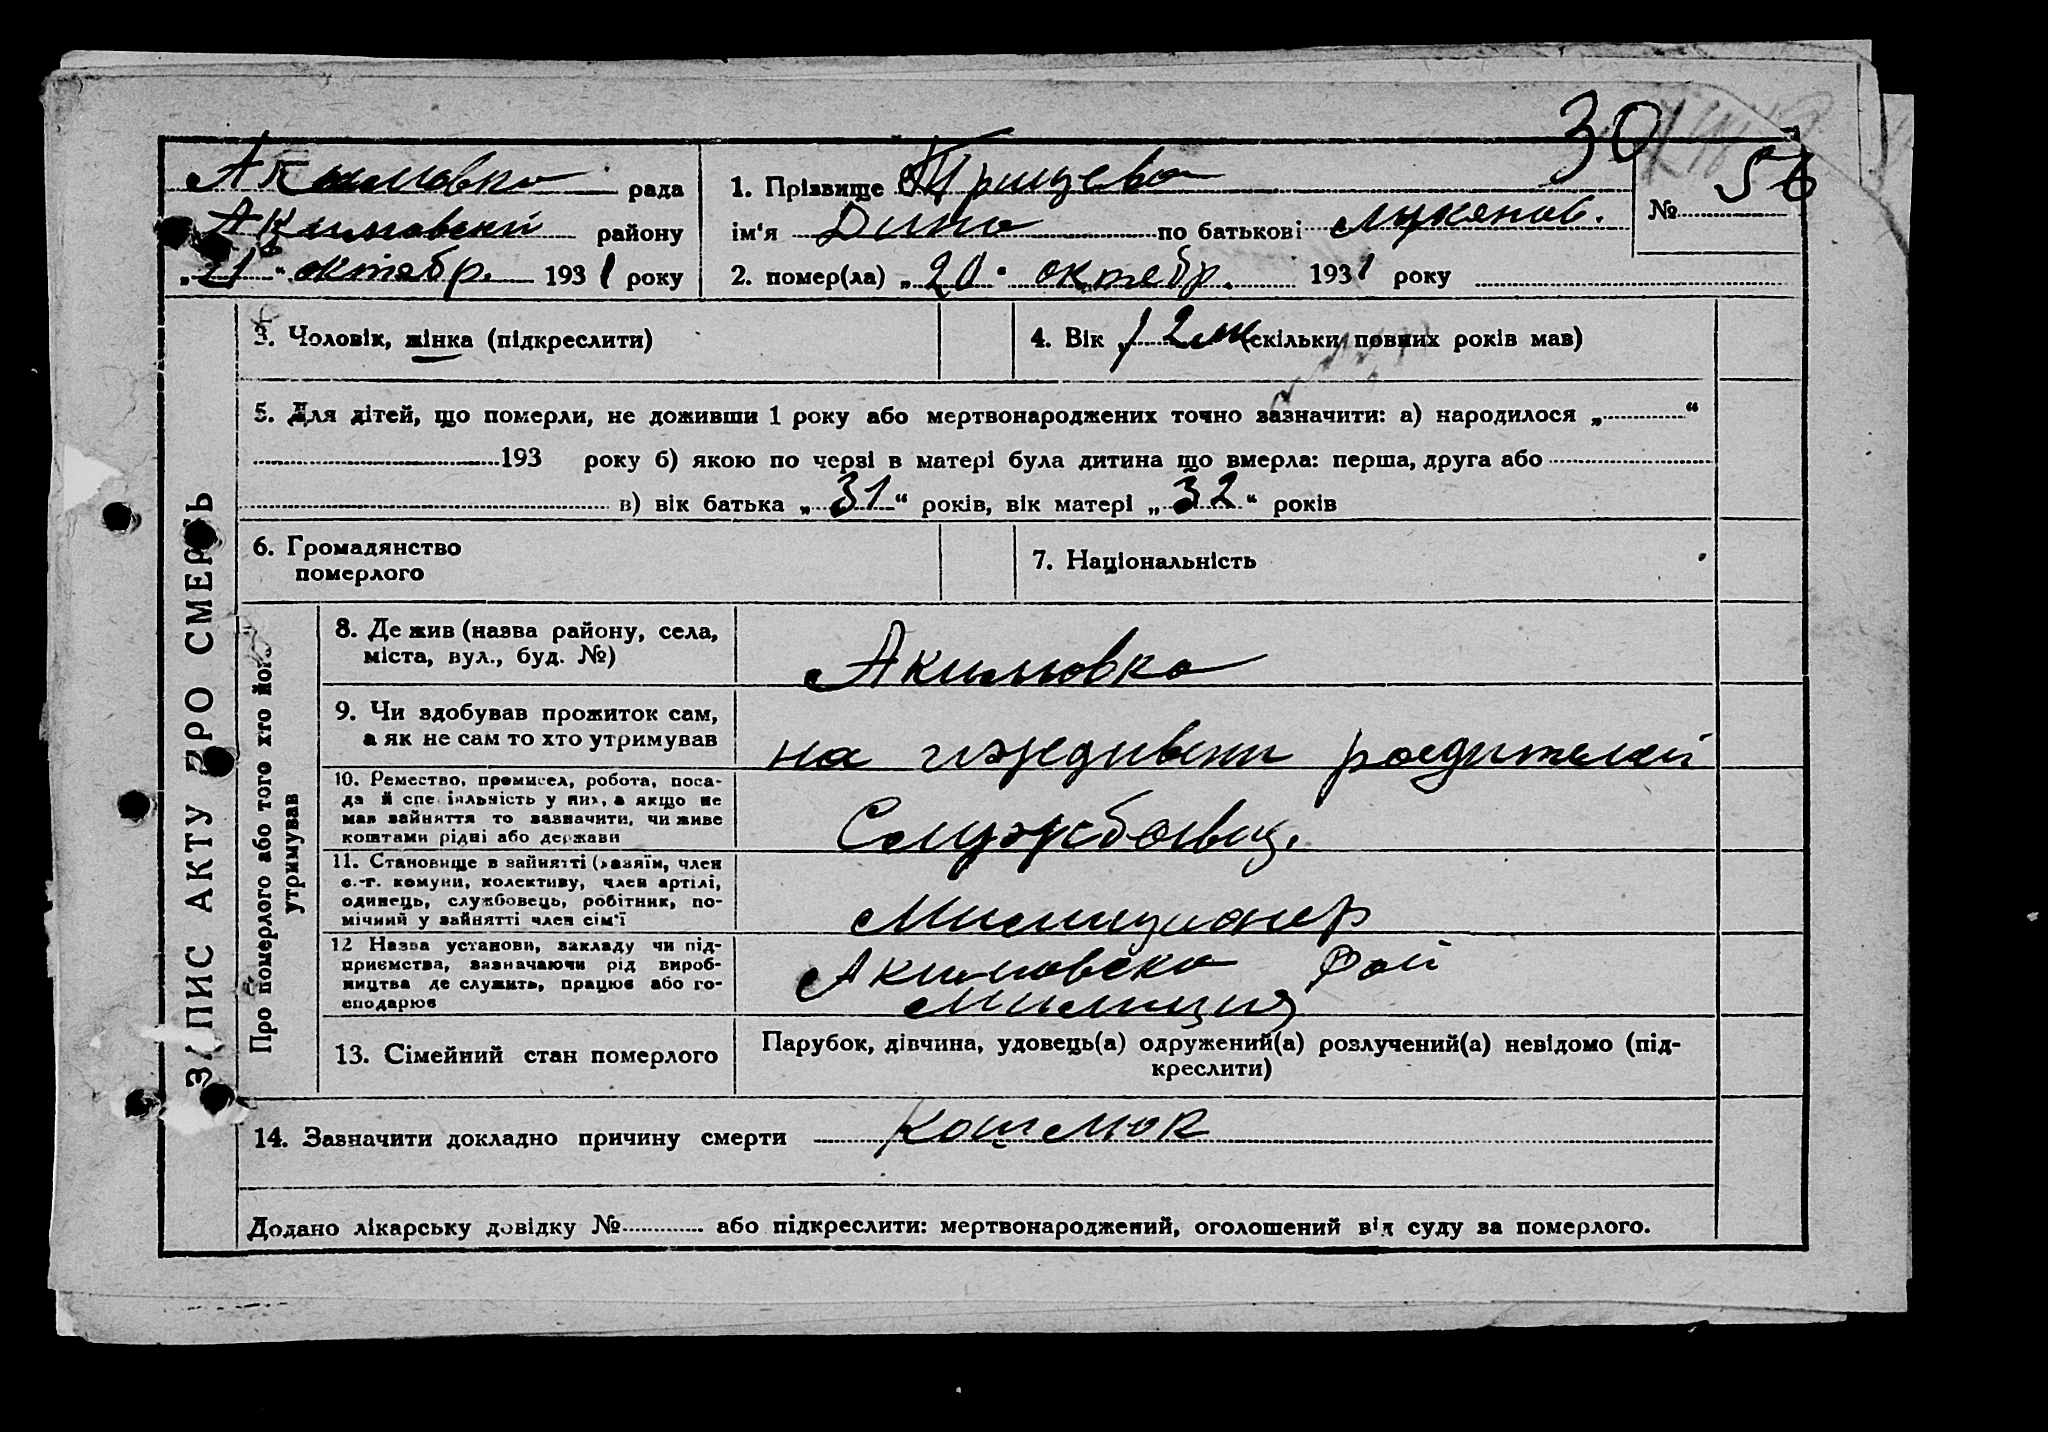 30
Акимовка рада
Акимовский району
„21“ октебр. 1931 року
1. Прізвище Грицева
ім'я Дина по батькові Лукянов.
№ 56
2. помер(ла) „20“ октебр. 1931 року
ЗАПИС АКТУ ПРО СМЕРТЬ
3. Чоловік, жінка (підкреслити)
4. Вік „ 2 м (скільки повних років мав)
5. Для дітей, що померли, не доживши 1 року або мертвонароджених точно зазначити: а) народилося „ “
193 року б) якою по черзі в матері була дитина що вмерла: перша, друга або
в) вік батька „31“ років, вік матері „32“ років
6. Громадянство
померлого
7. Національність
Про померлого або того хто його
утримував
8. Де жив (назва району, села,
міста, вул., буд. №)
Акимовка
9. Чи здобував прожиток сам,
а як не сам то хто утримував
на иждивени родителей
10. Ремество, промисел, робота, поса-
да й спеціяльність у них, а якщо не
мав зайняття то зазначити, чи живе
коштами рідні або держави
Службовец.
11. Становище в зайнятті (хазяїн, член
с.-г. комуни, колективу, член артілі,
одинець, службовець, робітник, по-
мічний у зайнятті член сім'ї
Милиционер
12 Назва установи, закладу чи під-
приємства, зазначаючи рід вироб-
ництва де служить, працює або го-
сподарює
Акимовска Рай
Милиция
13. Сімейний стан померлого
Парубок, дівчина, удовець(а) одружений(а) розлучений(а) невідомо (під-
креслити)
14. Зазначити докладно причину смерти
Додано лікарську довідку № або підкреслити: мертвонароджений, оголошений від суду за померлого.